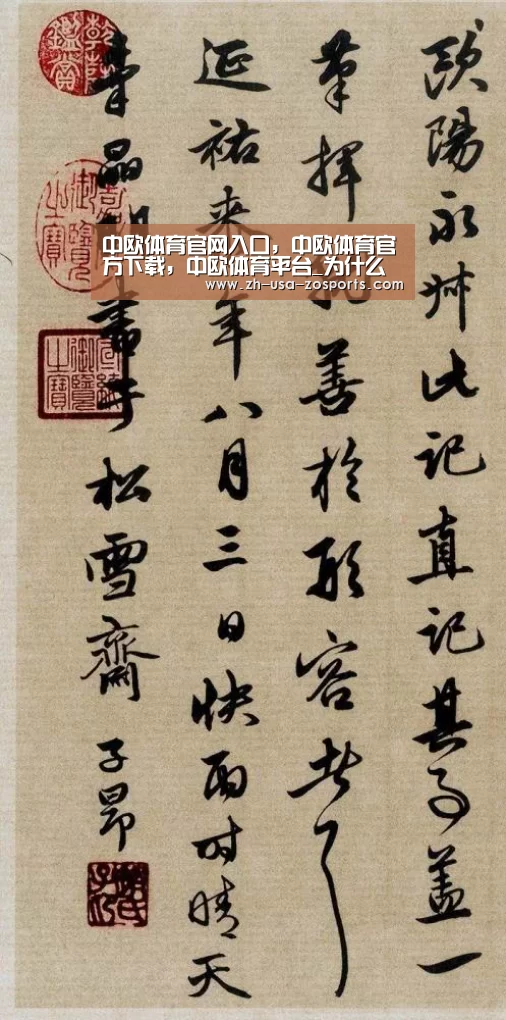 欧陽永叔此記直記其事蓋一
筆揮
善於形容者
延祐来年八月三日快雨时晴天
氣晶
書于松雪齋
子昂
中欧体育官网入口，中欧体育官
方下载，中欧体育平台_为什么
www.zh-usa-zosports.com